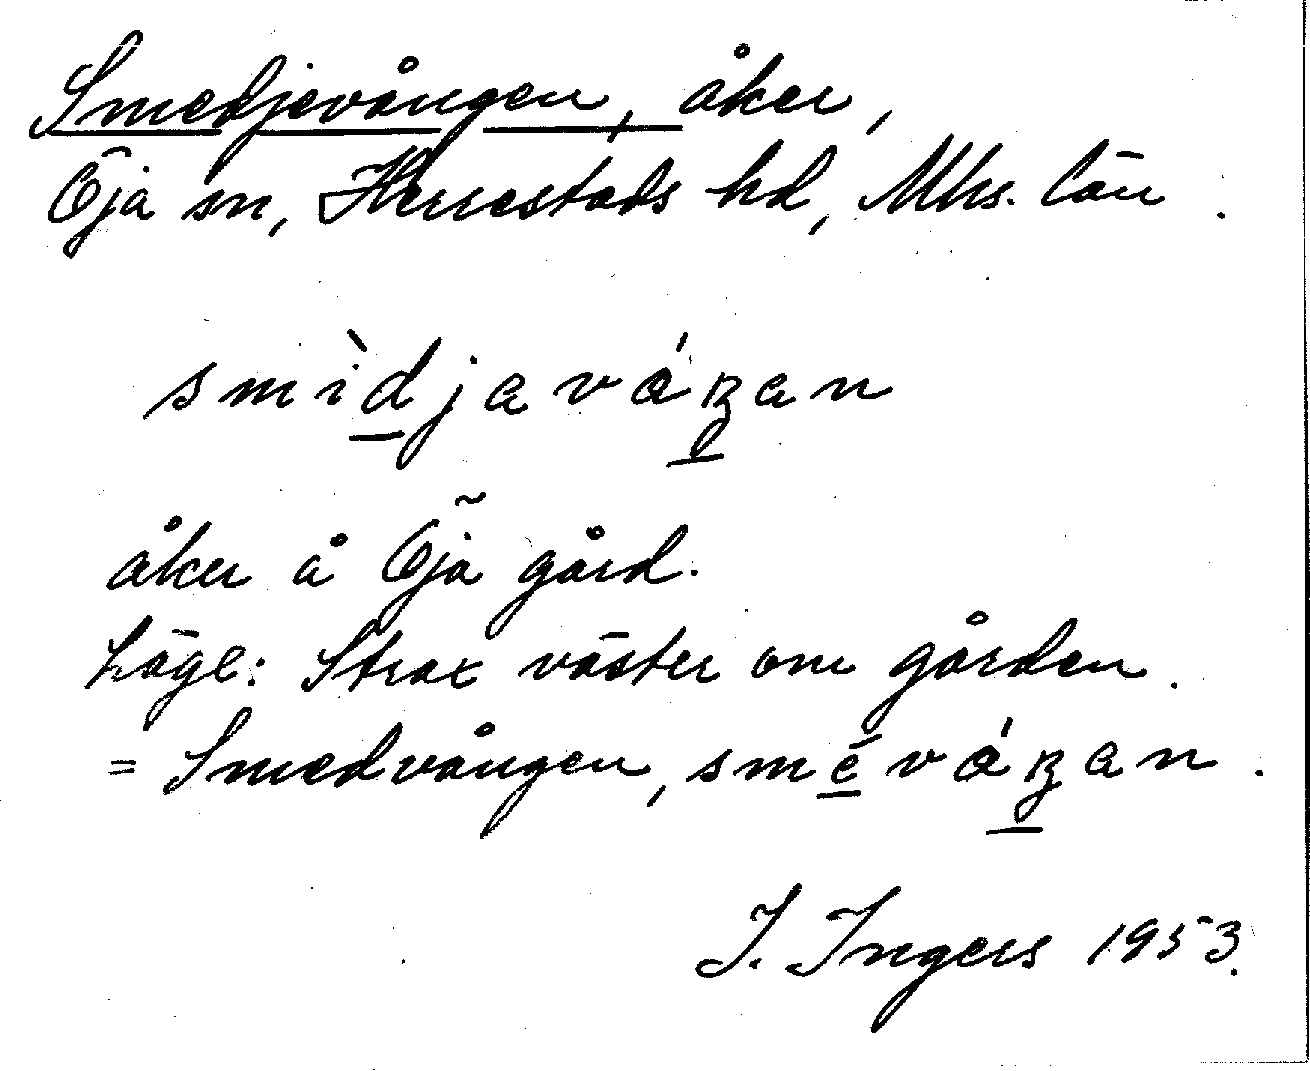 Smedjevången, åker,
Öja sn, Herrestads hd, Mhs. län.
smìdjaváŋan
åker å Öja gård.
Läge: Strax väster om gården.
= Smedvången, sméváŋan.
I. Ingers 1953.